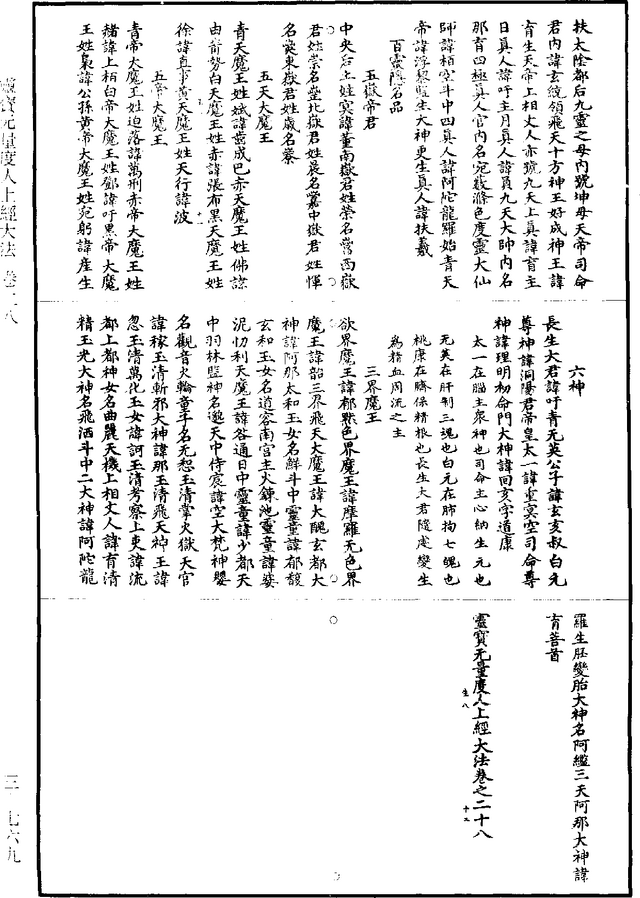 扶太陰都后九靈之母內號坤母天帝司命
君內諱玄綾領飛天十方神王好成神王諱
育生天帝上相丈人亦號九天上真諱育主
日真人諱吁主月真人諱員九天大帥內名
那育四極真人官內名宛藪滌色度靈大仙
師諱栢空斗中四真人諱阿陀龍羅始青天
帝諱浮黎監生大神更生真人諱扶羲
百靈隱名品
五嶽帝君
中央后土姓寞諱董南嶽君姓榮名嘗西嶽
君姓崇名壁北嶽君姓晨名當中嶽君姓惲
名嵈東嶽君姓歲名崇
五天大魔王
青天魔王姓斌諱靈成巴赤天魔王姓佛諒
由前勢白天魔王姓赤諱張布黑天魔王姓
徐諱直事黃天魔王姓天行諱波
五帝大魔王
青帝大魔王姓迫落諱萬刑赤帝大魔王姓
赭諱上栢白帝大魔王姓鄧諱吁黑帝大魔
王姓梟諱公孫黃帝大魔王姓宛躬諱產生
六神
長生大君諱吁青无英公子諱玄亥叔白元
尊神諱洞陽君帝皇太一諱重冥空司命尊
神諱理明初命門大神諱回亥字道康
太一在腦主衆神也司命主心納生元也
无英在肝制三魂也白元在肺拘七魄也
桃康在臍保精根也長生大君隨處變生
為精血周流之主
三界魔王
欲界魔王諱郁㸃色界魔王諱摩羅无色界
魔王諱韶三界飛天大魔王諱大醜玄都大
神諱阿那太和玉女名鮮斗中靈童諱郁馥
玄和玉女名道容南宮主火鍊池靈童諱婆
泥忉利天魔王諱谷通日中靈童諱少都天
中羽林監神名邈天中侍宸諱空大梵神嬰
名觀音火輪童子名无恕玉清掌火獄天官
諱稼玉清斬邪大神諱那玉清飛天神王諱
忽玉清萬化玉女諱訶玉清考察上吏諱流
都上都神女名曲麗天機上相文人諱育清
精玉光大神名飛洒斗中二大神諱阿陀龍
羅生胚變胎大神名阿濫三天阿那大神諱
育菩酋
靈寶无量度人上經大法卷之二十八
生八
十五
靈寶无量度人上經大法 卷二八
三 七六九